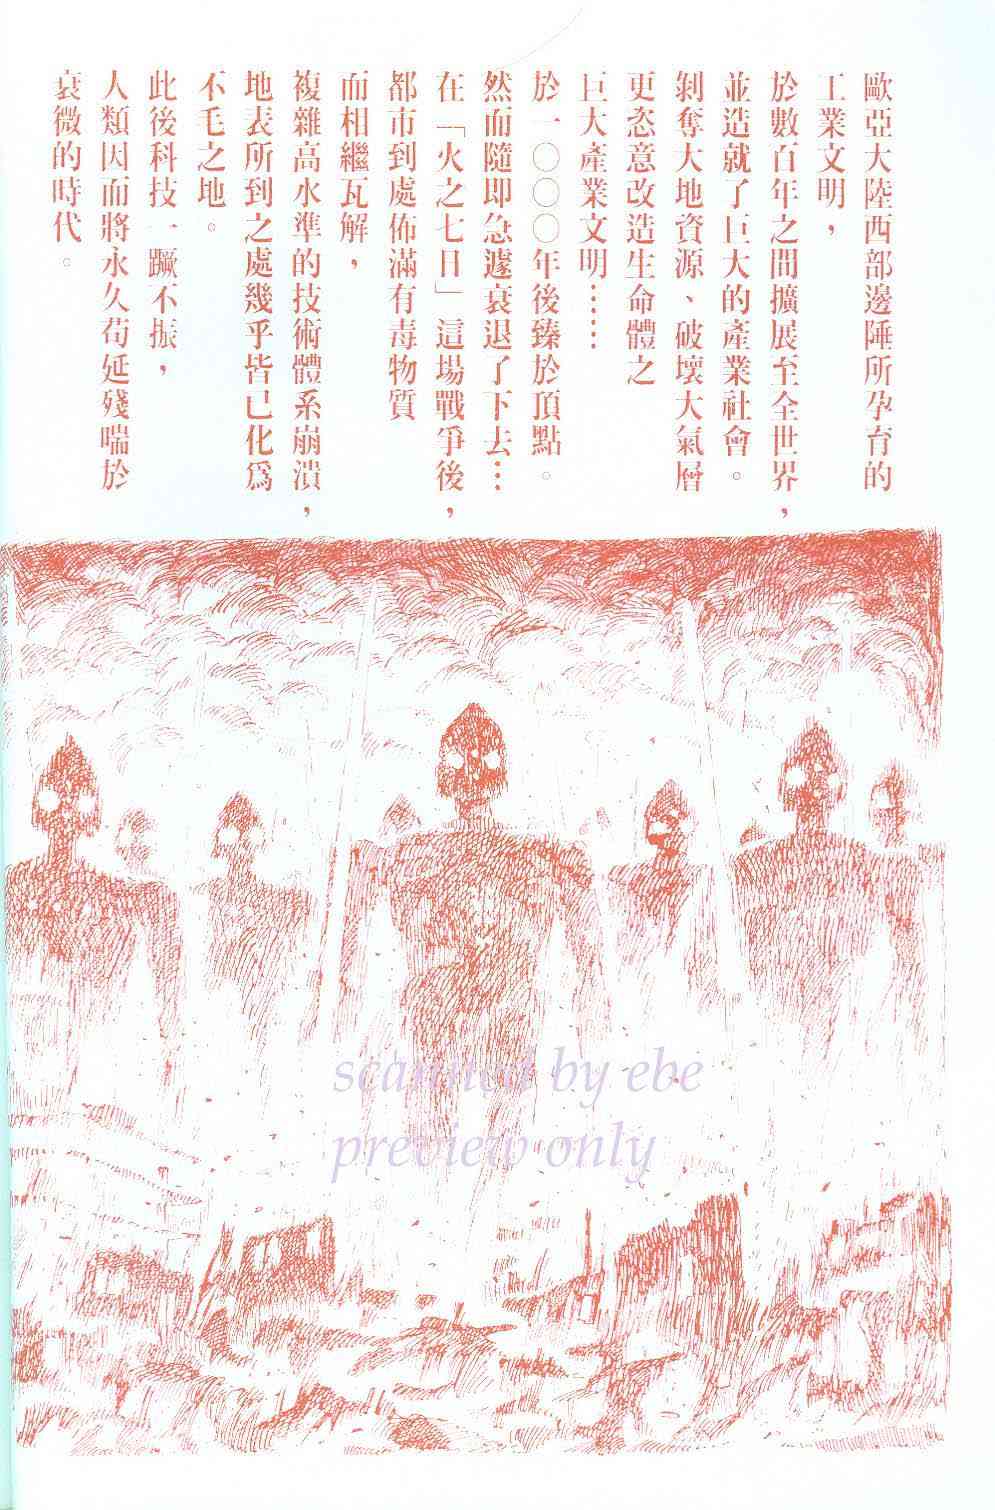 歐亞大陸西部邊陲所孕育的
工業文明，
於數百年之間擴展至全世界，
並造就了巨大的產業社會。
剝奪大地資源、破壞大氣層
更恣意改造生命體之
巨大產業文明……
於一〇〇〇年後臻於頂點。
然而隨即急遽衰退了下去…
在「火之七日」這場戰爭後，
都市到處佈滿有毒物質
而相繼瓦解，
複雜高水準的技術體系崩潰，
地表所到之處幾乎皆已化爲
不毛之地。
此後科技一蹶不振，
人類因而將永久苟延殘喘於
衰微的時代。
scanned by ebe
preview only